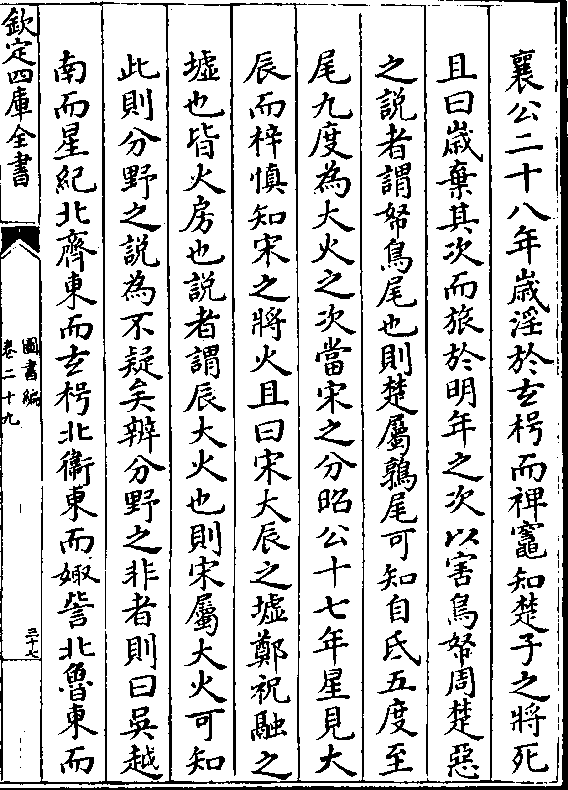 襄公二十八年歲淫於玄枵而禆竈知楚子之將死
且曰歲棄其次而旅於明年之次以害鳥帑周楚惡
之説者謂帑鳥尾也則楚屬鶉尾可知自氐五度至
尾九度為大火之次當宋之分昭公十七年星見大
辰而梓慎知宋之將火且曰宋大辰之墟鄭祝融之
墟也皆火房也説者謂辰大火也則宋屬大火可知
此則分野之説為不疑矣辨分野之非者則曰吳越
南而星紀北齊東而玄枵北衞東而娵訾北魯東而
欽定四庫全書
圖書編
卷二十九
三十七